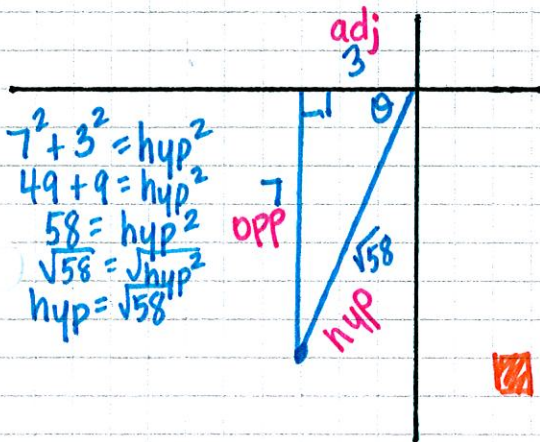 adj
3
θ
7² + 3² = hyp²
49 + 9 = hyp²
58 = hyp²
√58 = √hyp²
hyp = √58
7
opp
√58
hyp